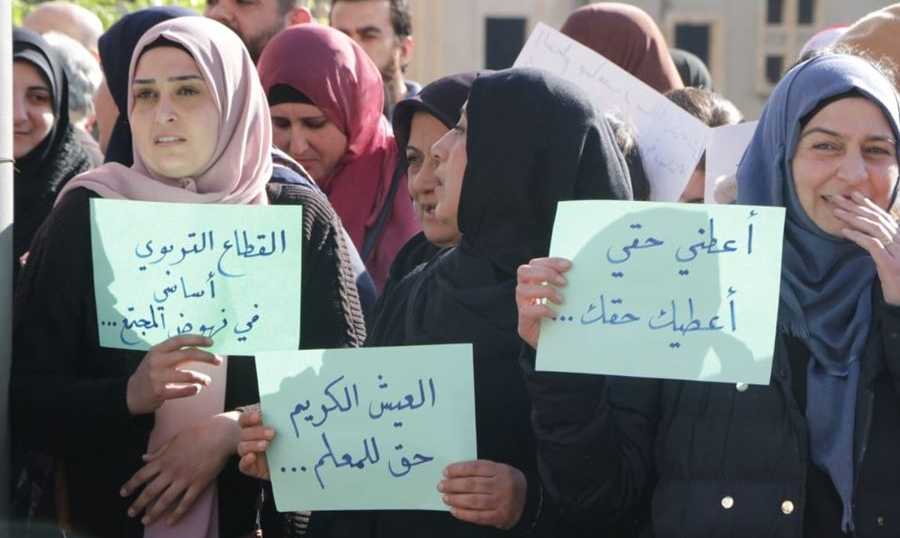 القطاع التربوي
أساسي
في نهوض المجتمع...
العيش الكريم
حق للمعلم...
أعطني حقي
أعطيك حقك...